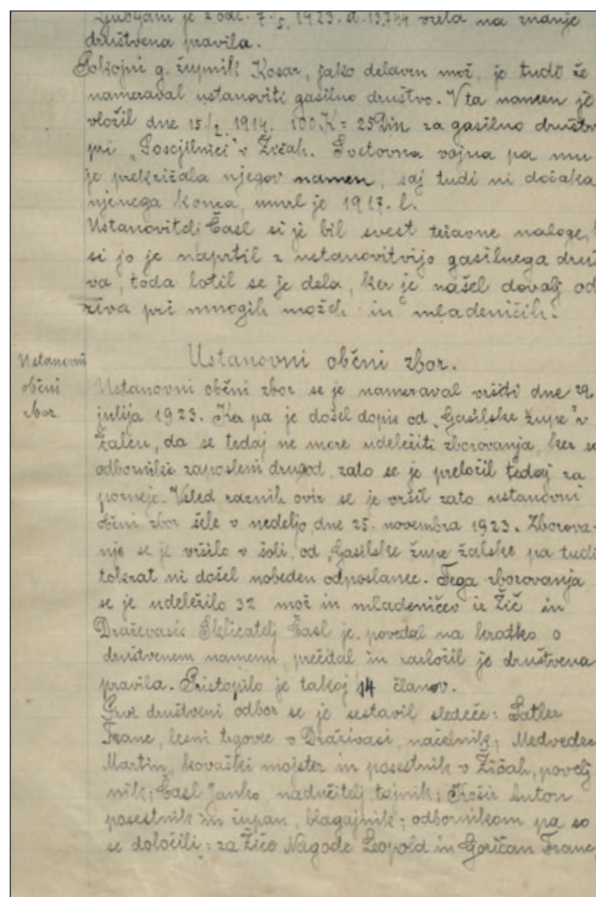 Ljubljani je z odl. 7. 5. 1923. d. 13.744 vzela na znanje
društvena pravila.
Pokojni g. župnik Kosar, jako delaven mož, je tudi že
nameraval ustanoviti gasilno društvo. V ta namen je
vložil dne 15/2. 1914. 100 K = 25 Din za gasilno društvo
pri „Posojilnici" v Žičah. Svetovna vojna pa mu
je prekrižala njegov namen, saj tudi ni dočaka
njenega konca, umrl je 1917. l.
Ustanovitelj Časl si je bil svest težavne naloge,
si jo je naprtil z ustanovitvijo gasilnega druš
va, toda lotil se je dela, ker je našel dovolj od
ziva pri mnogih možeh in mladeničih.
Ustanovni občni zbor.
Ustanovni
občni
zbor
Ustanovni občni zbor se je nameraval vršiti dne 29.
julija 1923. Ker pa je došel dopis od „Gasilske župe" v
Žalcu, da se tedaj ne more udeležiti zborovanja, ker so
odborniki zaposleni drugod, zato se je preložil tedaj za
pozneje. Vsled raznih ovir se je vršil zato ustanovni
občni zbor šele v nedeljo, dne 25. novembra 1923. Zborova-
nje se je vršilo v šoli, od „Gasilske župe žalske pa tudi
tokrat ni došel nobeden odposlanec. Tega zborovanja
se je udeležilo 32 mož in mladeničev iz Žič in
Draževasi. Sklicatelj Časl je povedal na kratko o
društvenem namenu, prečital in razložil je društvena
pravila. Pristopilo je takoj 14 članov.
Prvi društveni odbor se je sestavil sledeče: Satler
Franc, lesni trgovec v Draživasi, načelnik; Medvedec
Martin, kovaški mojster in posestnik v Žičah, povelj
nik; Časl Janko, nadučitelj tajnik; Košir Anton
posestnik in župan, blagajnik; odbornikom pa so
se določili: za Žiče Nagode Leopold in Goričan Franc,